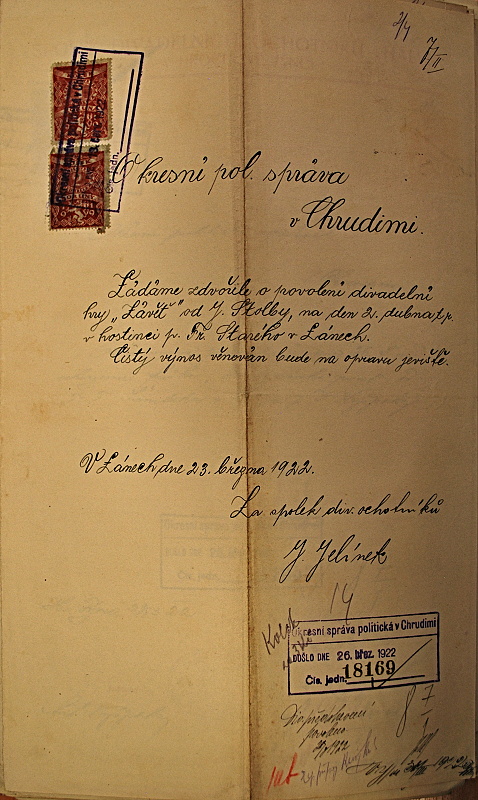 2/4
7/II
Okresní pol. správa
v Chrudimi.
Žádáme zdvořile o povolení divadelní
hry „Závěť" od J. Štolby, na den 2. dubna t.r.
v hostinci p. Fr. Starého v Lánech.
Čistý výnos věnován bude na opravu jeviště.
V Lánech dne 23. března 1922.
Za spolek div. ochotníků
J. Jelínek
14
Kolek
Okresní správa politická v Chrudimi
DOŠLO DNE 26. břez. 1922
Čís. jedn. 18169
8 7